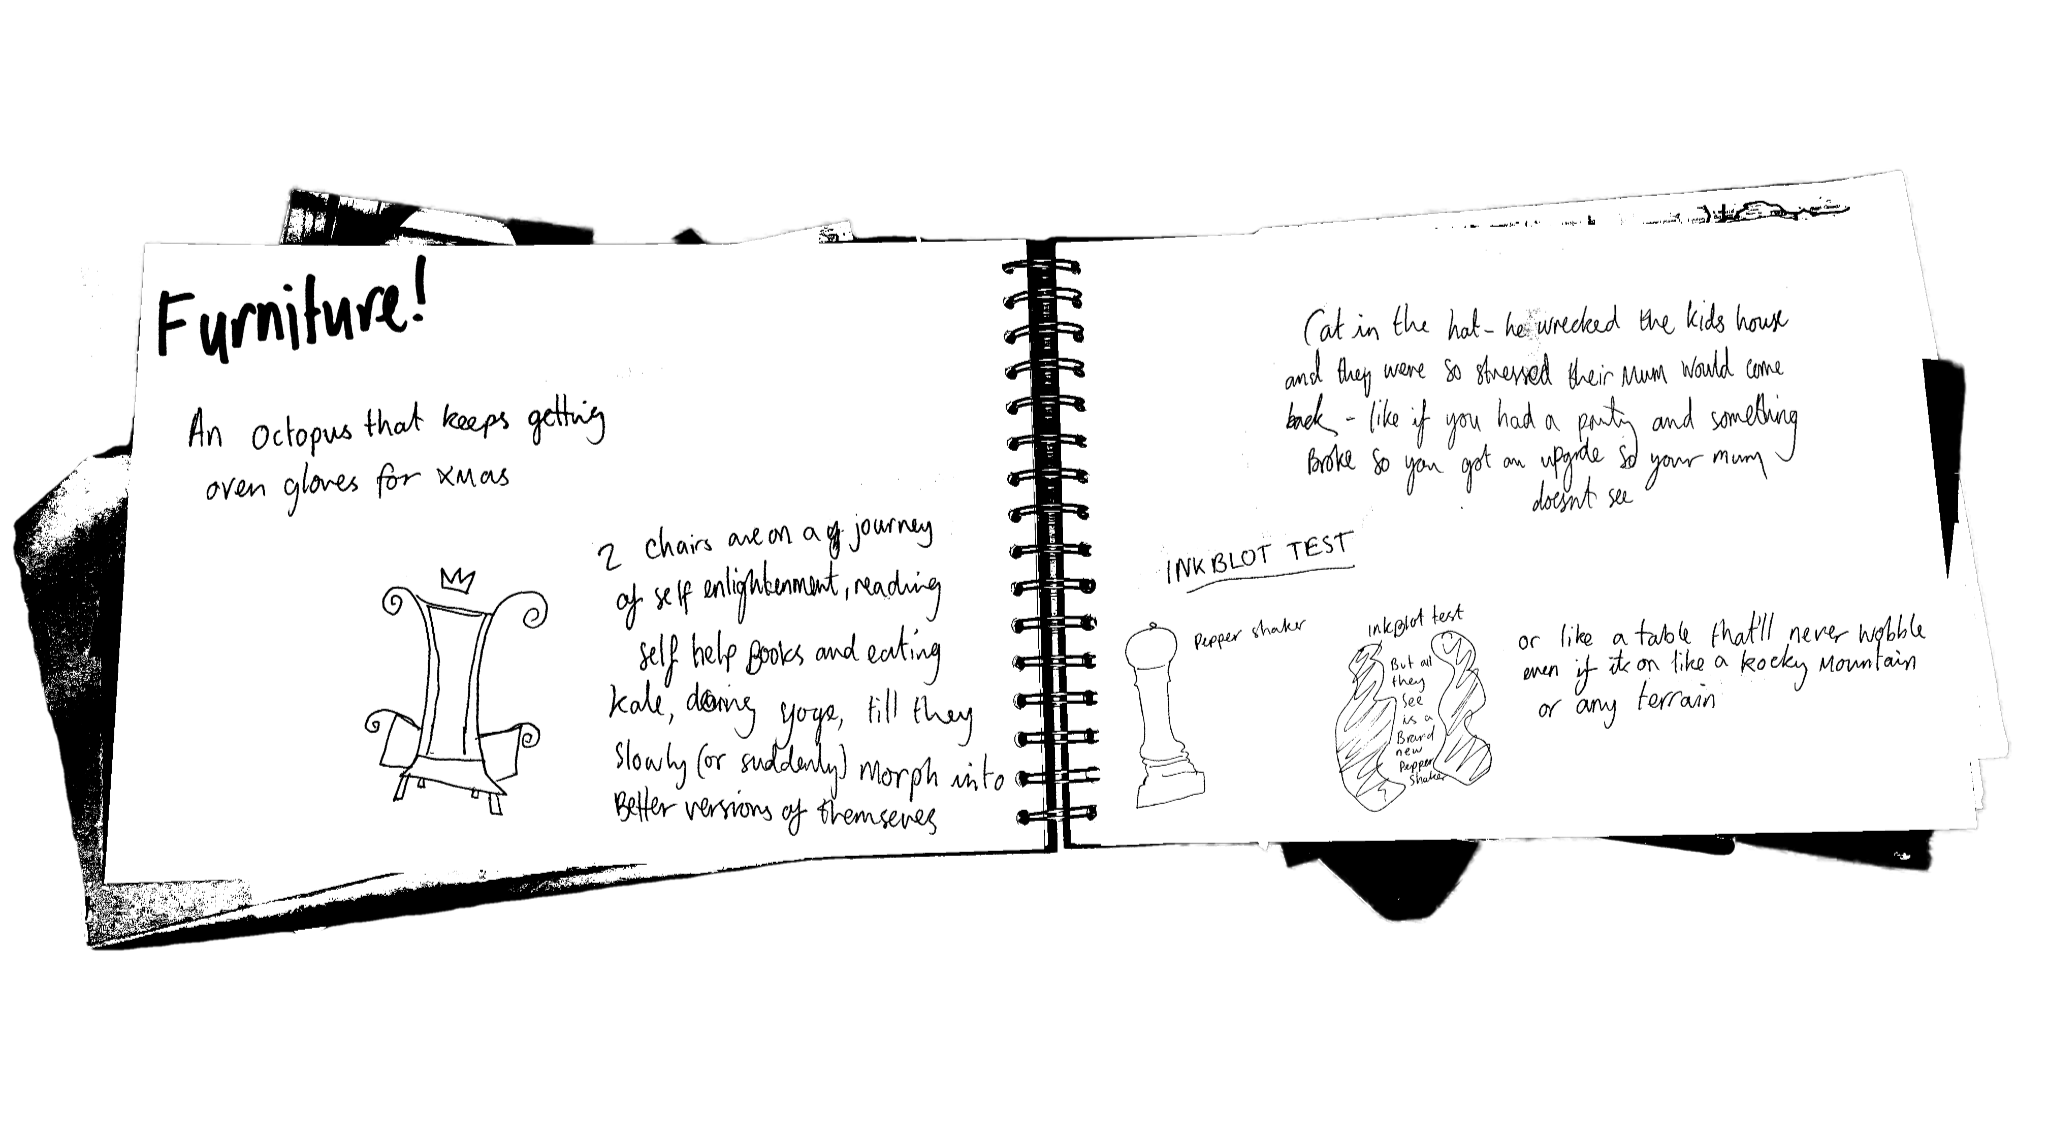 Furniture!
An octopus that keeps getting
oven gloves for xmas
2 chairs are on a journey
of self enlightenment, reading
self help Books and eating
kale, doing yoga, till they
slowly (or suddenly) morph into
Better versions of themseves
Cat in the hat - he wrecked the kids house
and they were so stressed their mum would come
back - like if you had a party and something
Broke so you got an upgrde so your mum
doesnt see
INKBLOT TEST
Pepper shaker
inkBlot test
But all
they
see
is a
Brand
new
Pepper
Shaker
or like a table that'll never wobble
even if its on like a Rocky Mountain
or any terrain